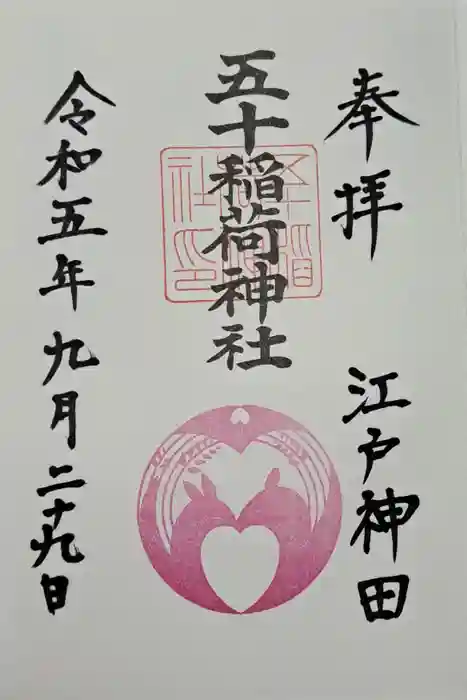 奉拝
江戸神田
五十稲荷神社
令和五年九月二十九日